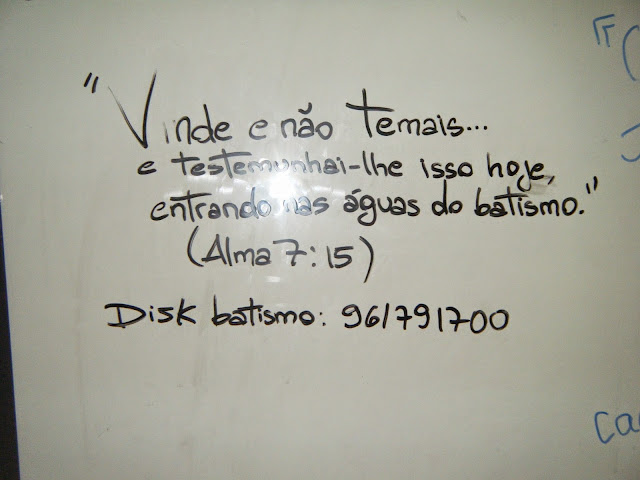 "Vinde e não temais...
e testemunhai-lhe isso hoje,
entrando nas águas do batismo."
(Alma 7:15)
Disk batismo: 961791700